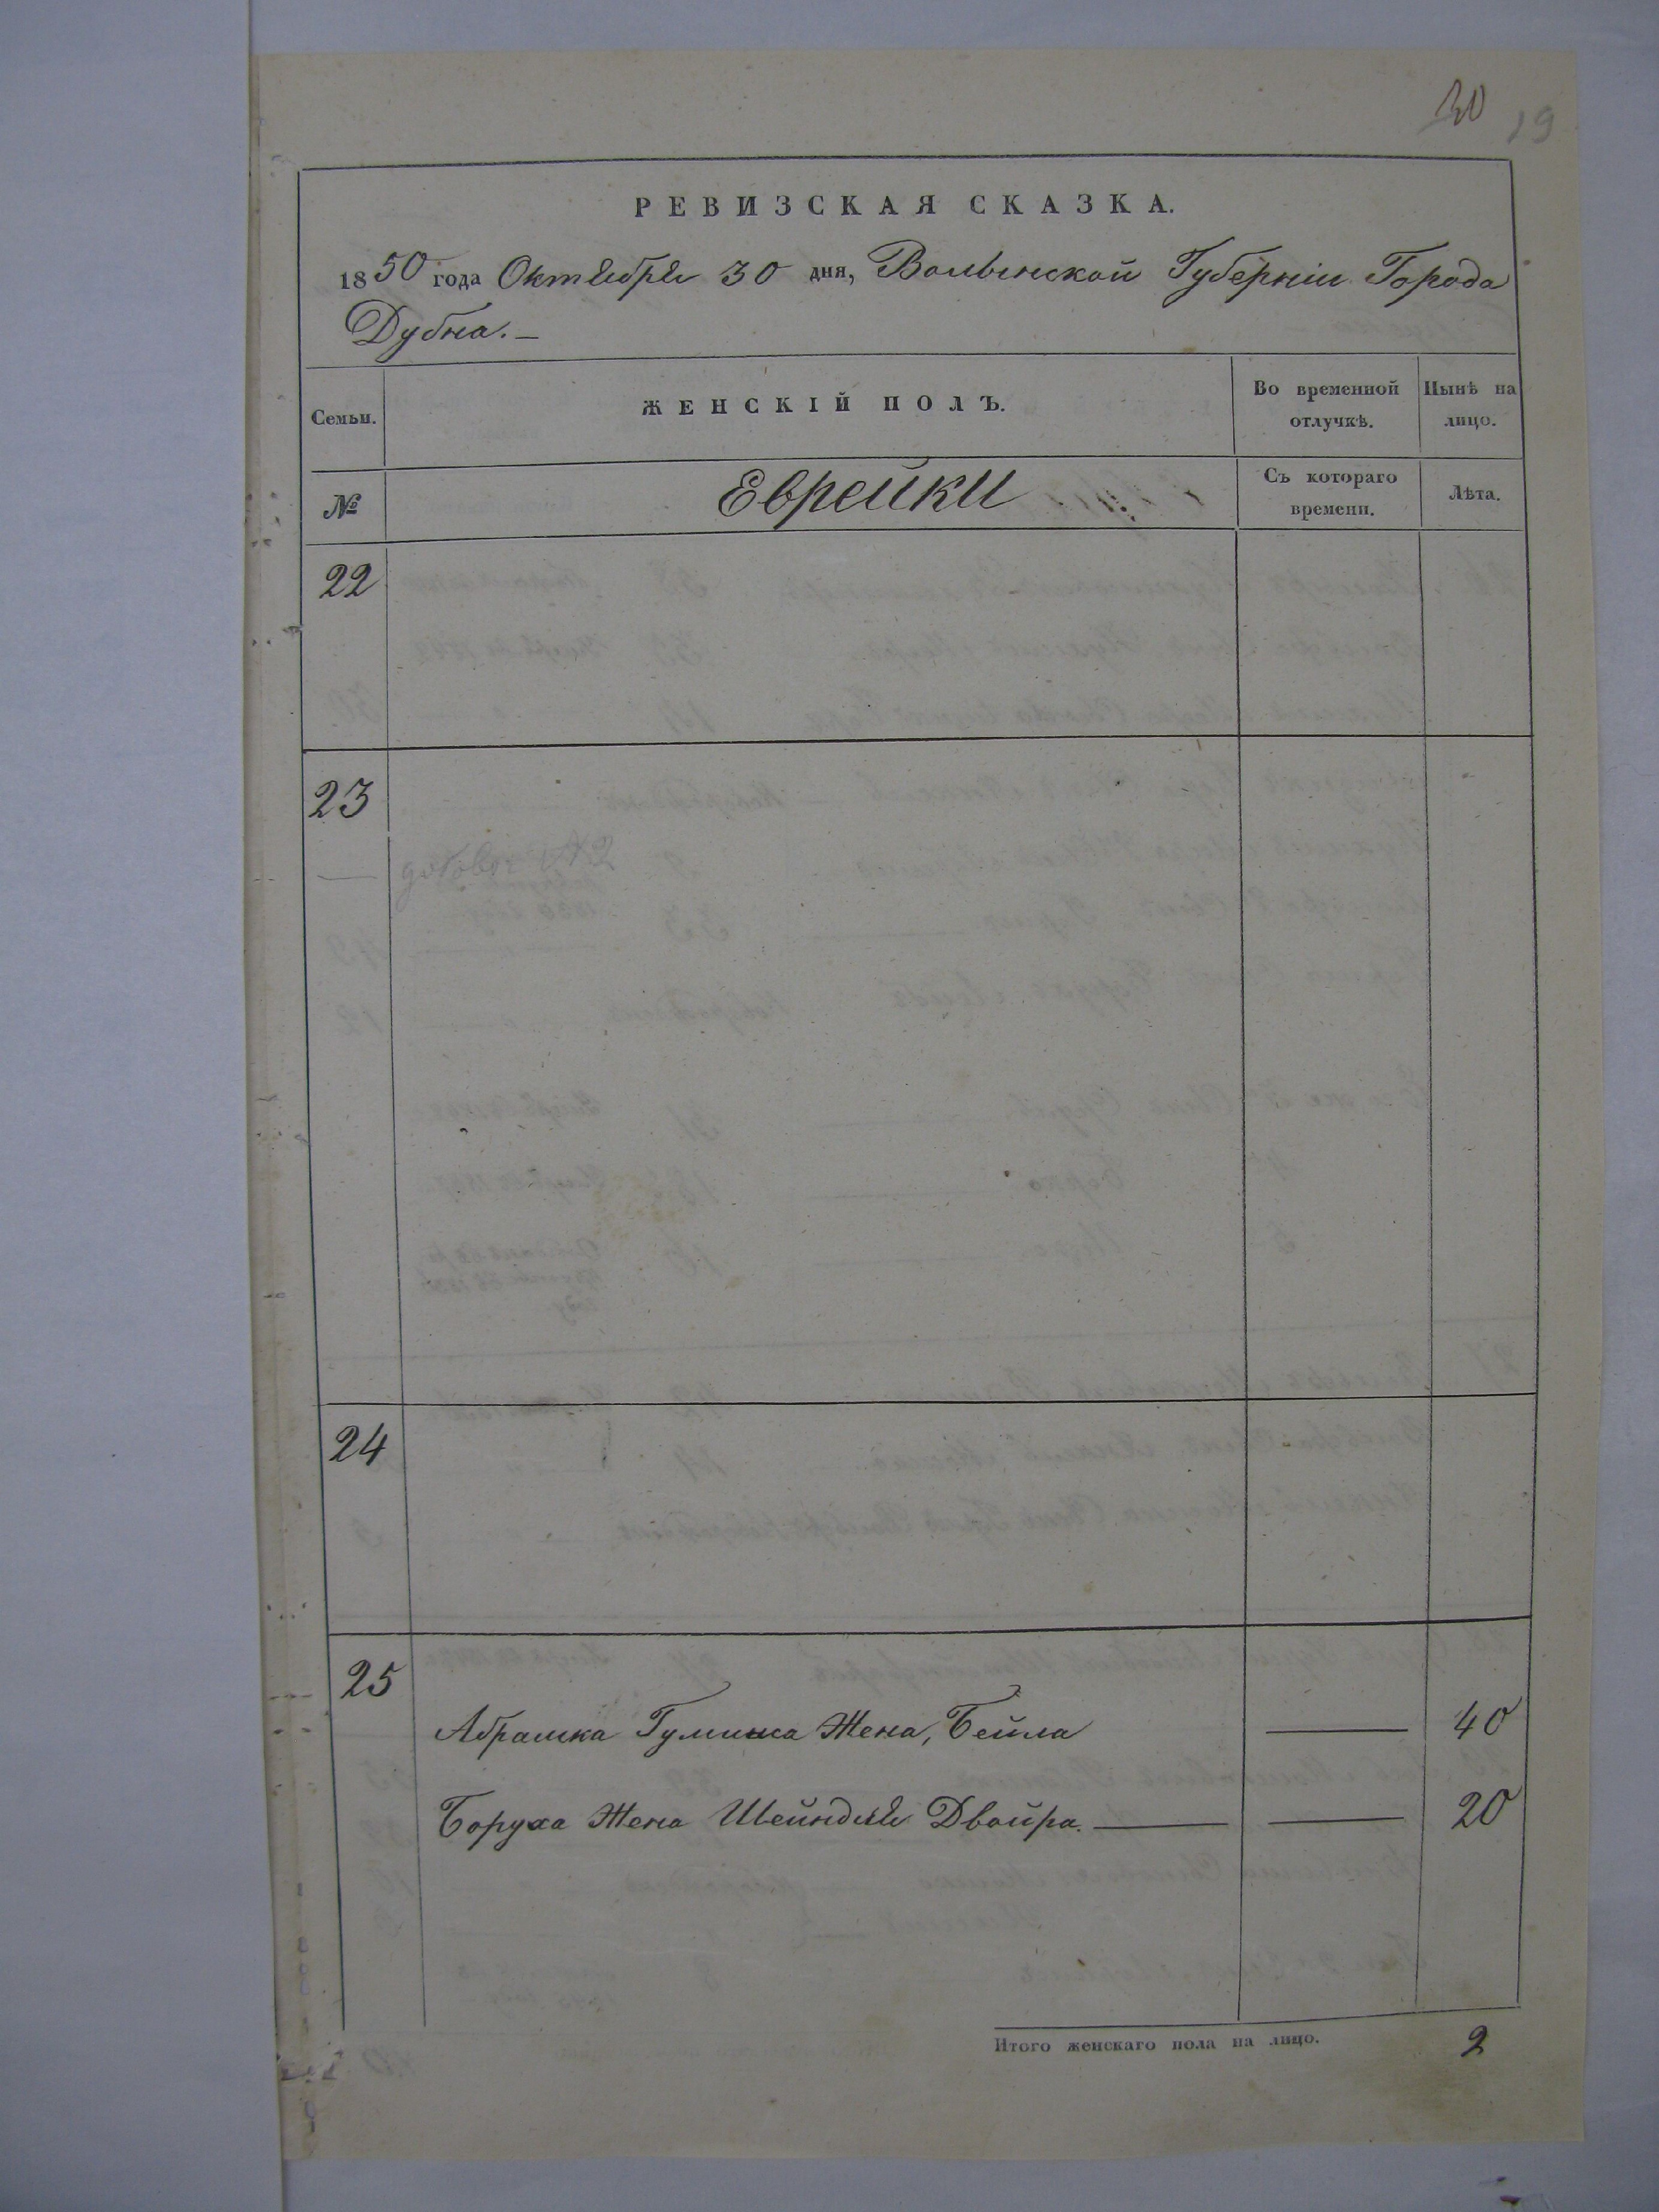 30 19
РЕВИЗСКАЯ СКАЗКА.
1850 года Октября 30 дня, Волынской Губерніи Города
Дубна. —
Семьи.
ЖЕНСКІЙ ПОЛЪ.
Во временной отлучкѣ.
Нынѣ на лицо.
№
Еврейки
Съ котораго времени.
Лѣта.
22
23
24
25
Абрамка Гумина Жена, Бейла — 40
Боруха Жена Шейндля Двойра. — — 20
Итого женскаго пола на лицо. 2